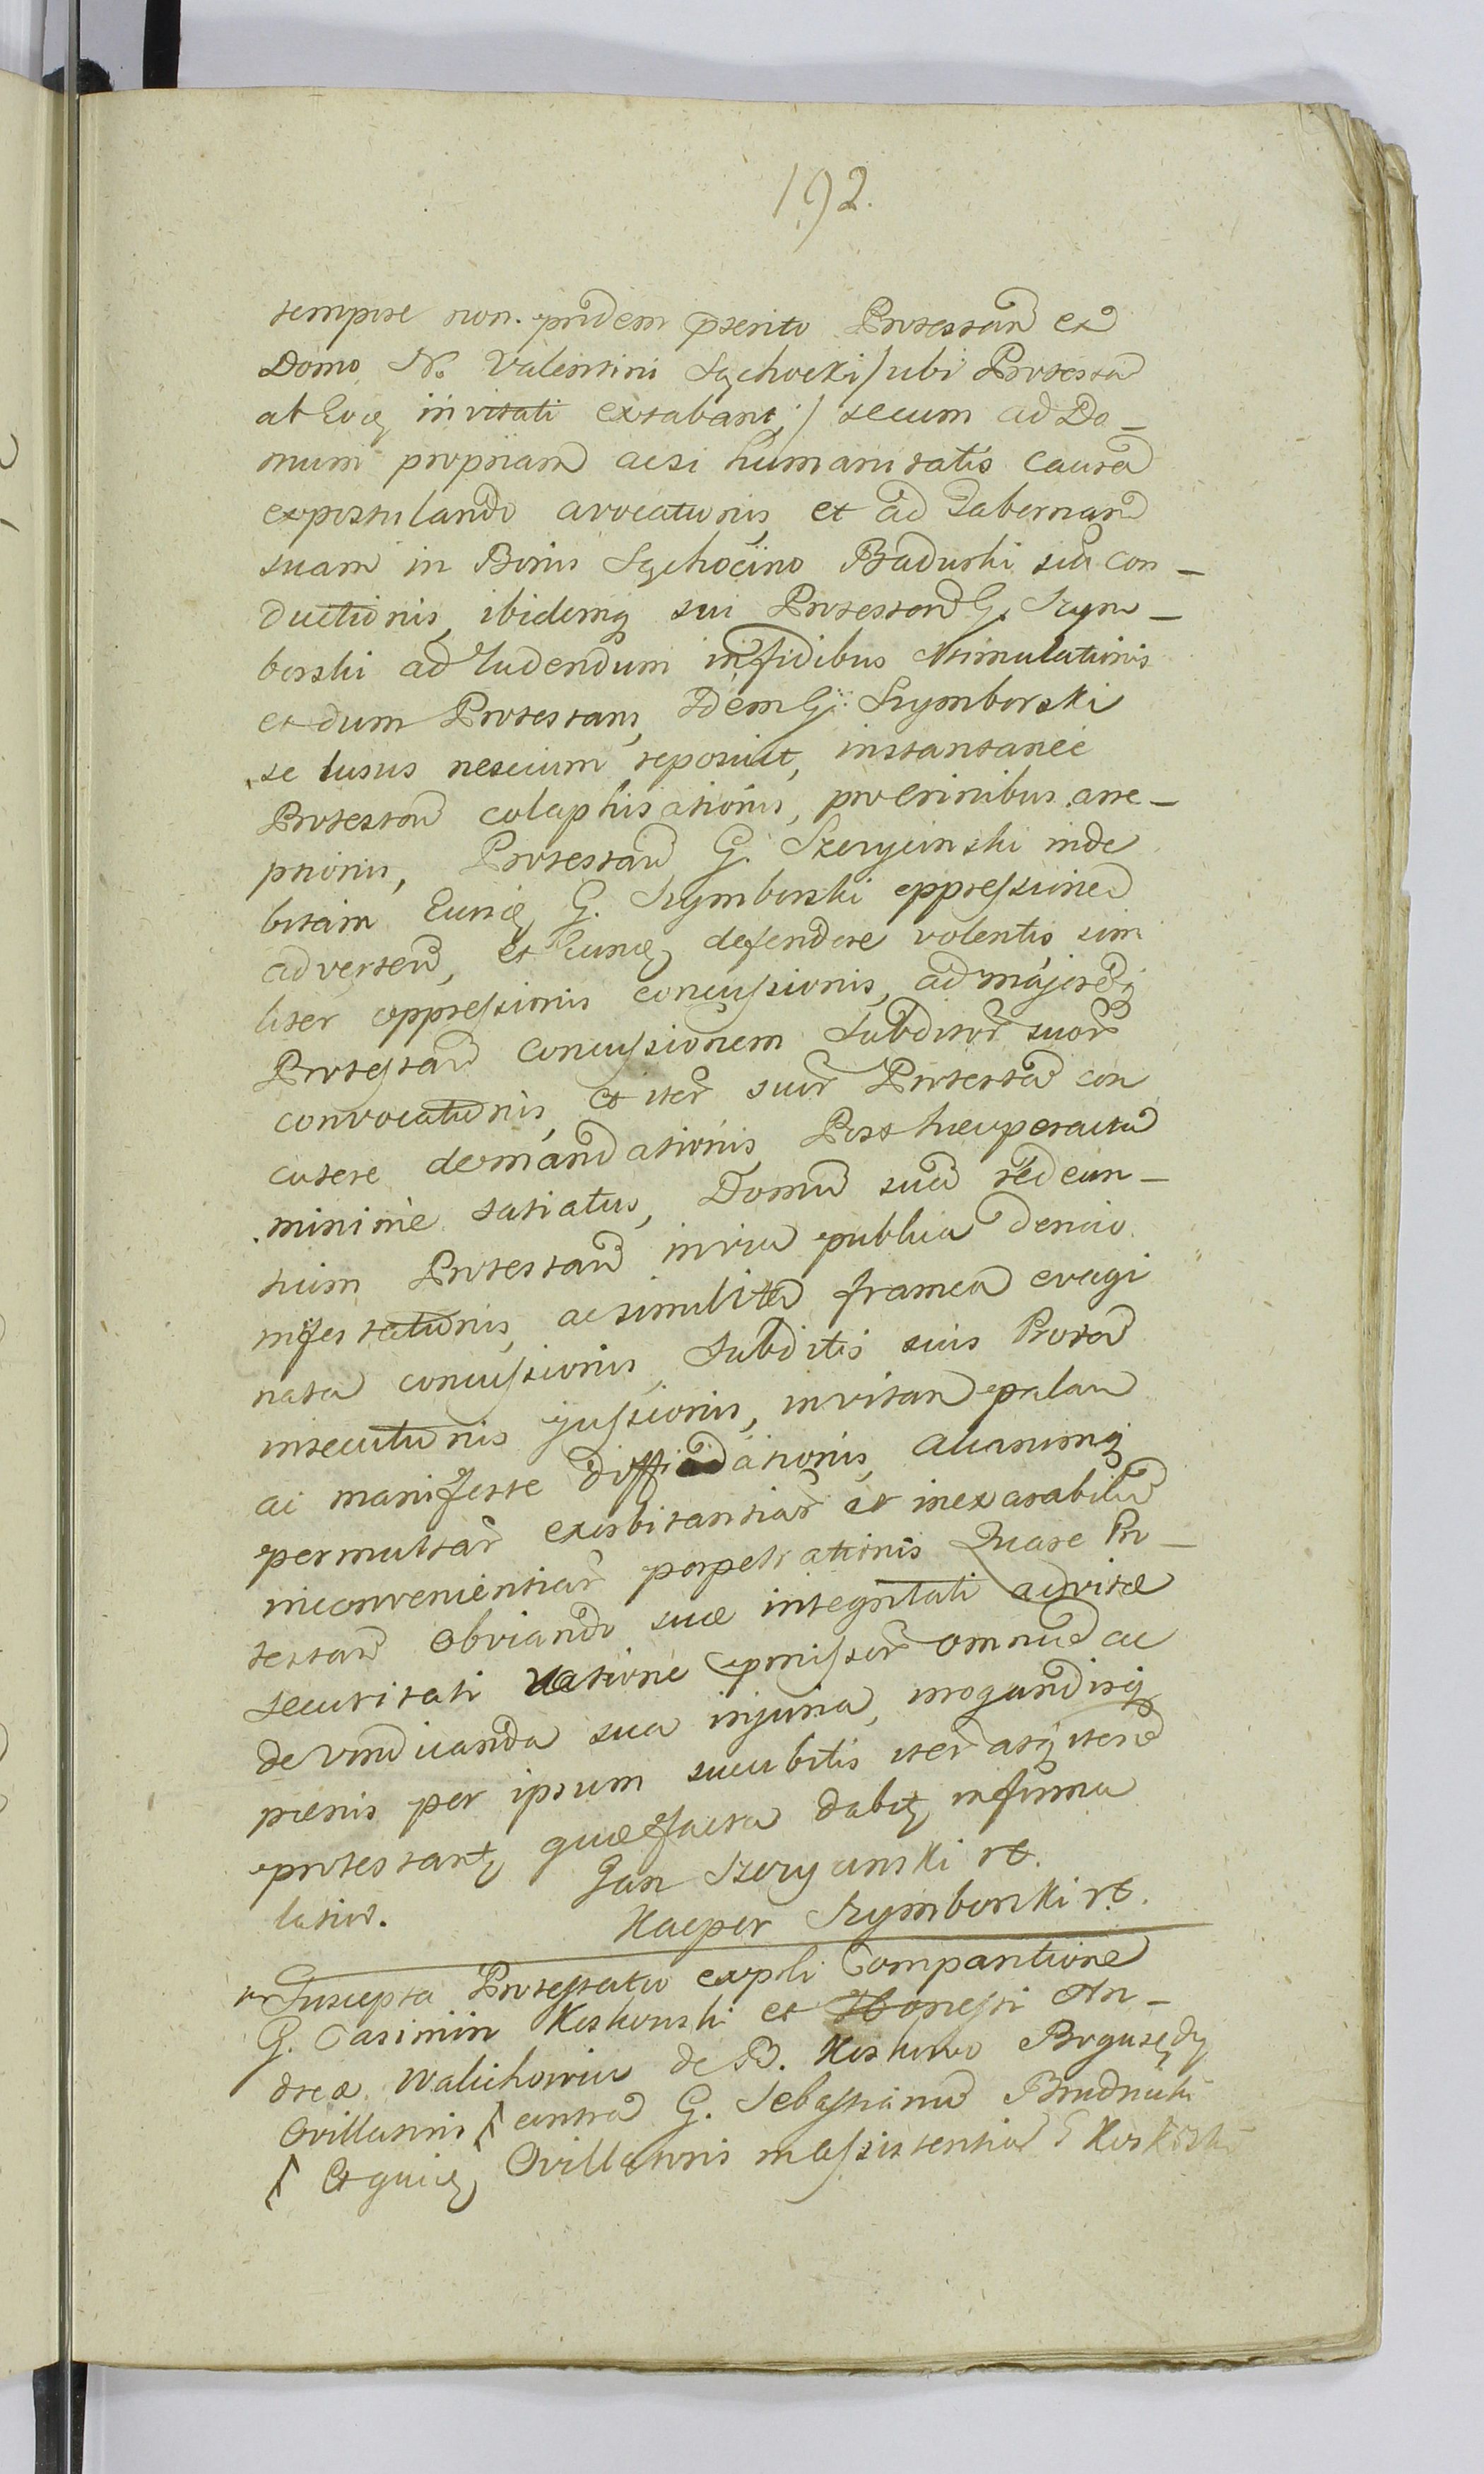 192.
tempore non pridem pterito Protestań ex
Domo N. Valentini Sychocki / ubi Protestā
ab Eoq invitati extabant / secum ad Do_
mum propriam acsi humanitatis causā
expostulando avocationis, et ad Tabernam
suam in Bonis Sychocino Badurki sitā con_
ductionis, ibidemq sui Protestań G. Szym_
borski ad ludendum in fidibus stimulationis
et dum Protestans, Idem G: Szymborski
se lusus nescium reposuit, instantanee
Protestań colaphisationis, pro crinibus arre_
ptionis, Protestań G. Szerycinski inde
bitam Eundē G. Szymborski oppressionē
adverteń, et Eundē defendere volentis simi
liter oppressionis concussionis, ad majorēq
Protestań concussionem Subditor suor
convocationis, et iter suor Protestā con
cutere demandationis Post hæc peracta
minime satiatus, Domū suā redeun_
tium Protestań in via publica denuo
infestationis, ac simili framea evagi
nata concussionis, Subditis suis Protā
insecutionis jussionis, in vitam palam
ac manifeste diffidationis, aliarumq
permultar exorbitantiar et inexarabiliū
inconvenientiar perpetrationis Quare Pro_
testań obviando suæ integritati ac vitæ
securitati ratione præmissor omniū ac
de vindicanda sua injuria, irrogandisq
pœnis per ipsum succubitis iter atq iterū
protestantr quæ facta dabitr in forma
latior.
Jan Szerycinski rę.
Kacper Szymborski rę.
Suscepta Protestatio ex psli Comparitione
G. Casimiri Koskowski et Honesti An_
dreæ Walichowicz de B. Koskowo Bogusędy
Ovillatoris contrā G. Sebastianū Brudnicki
Et quidē Ovillatoris in assistentia G Koskowski